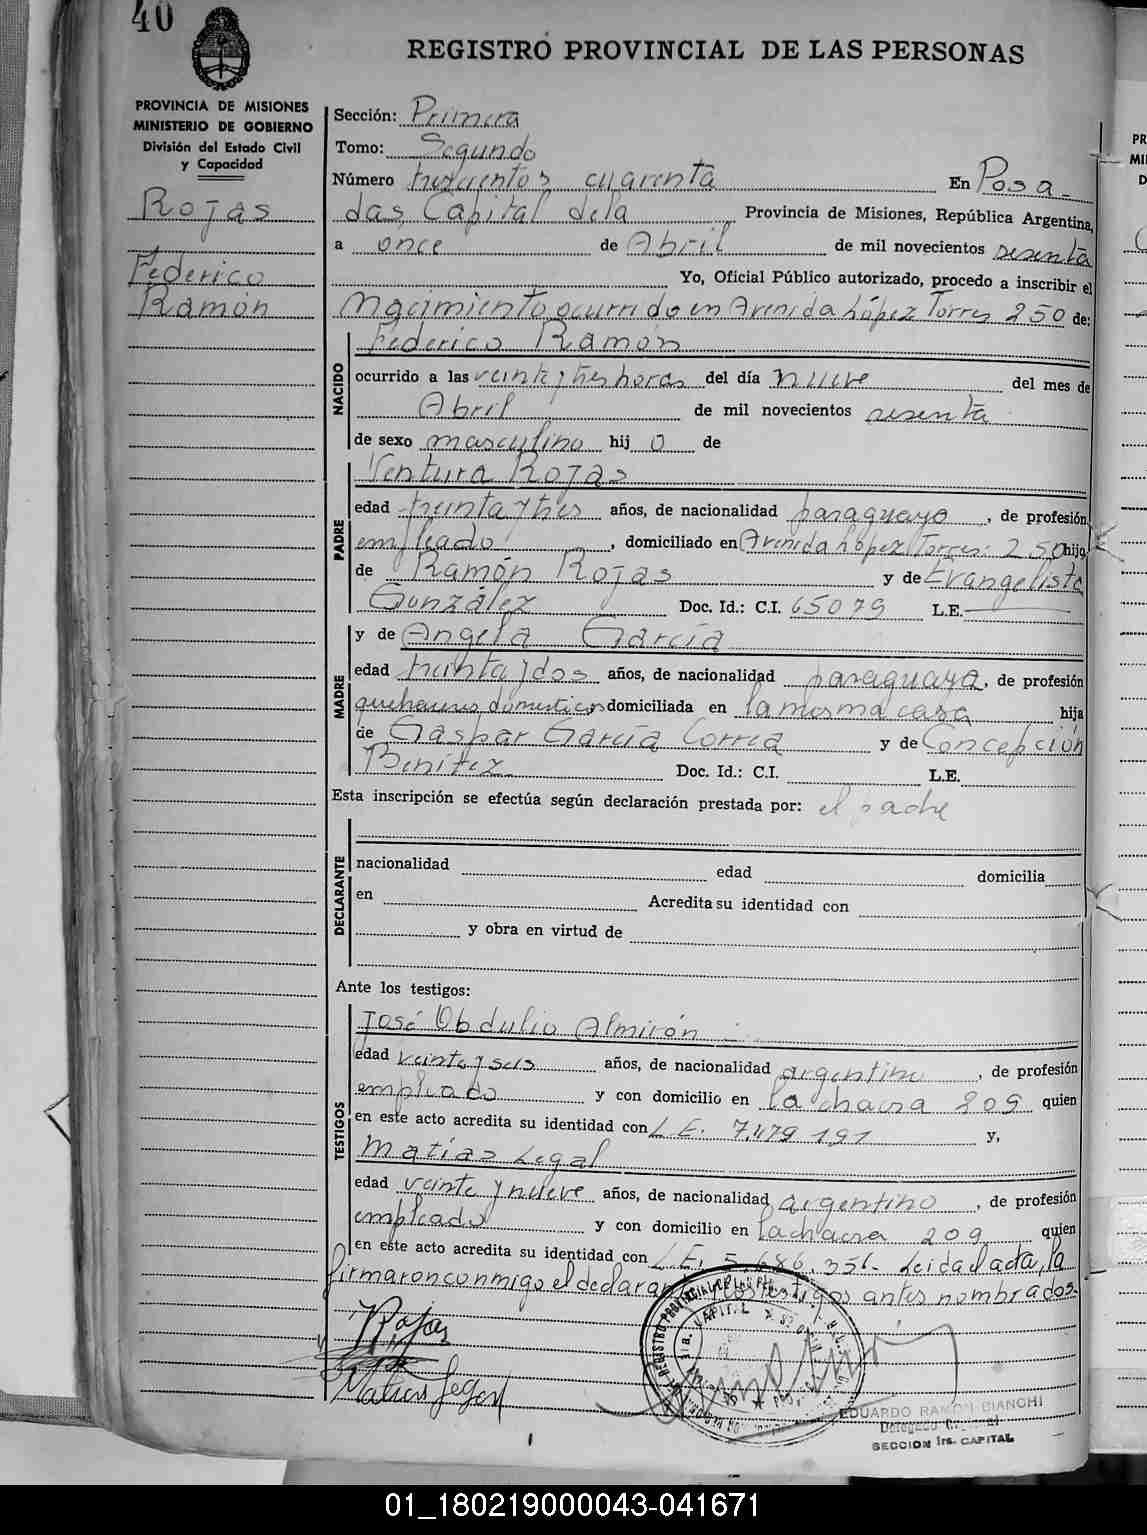 40
REGISTRO PROVINCIAL DE LAS PERSONAS
PROVINCIA DE MISIONES
MINISTERIO DE GOBIERNO
División del Estado Civil
y Capacidad
Rojas
Federico
Ramón
Sección: Primera
Tomo: Segundo
Número trescientos cuarenta En Posa-
das Capital de la Provincia de Misiones, República Argentina,
a once de Abril de mil novecientos sesenta
Yo, Oficial Público autorizado, procedo a inscribir el
Nacimiento ocurrido en Avenida López Torres 250 de:
Federico Ramón
NACIDO
ocurrido a las veinte y tres horas del día nueve del mes de
Abril de mil novecientos sesenta
de sexo masculino hij o de
Ventura Rojas
PADRE
edad treinta y tres años, de nacionalidad paraguayo, de profesión
empleado, domiciliado en Avenida López Torres: 250 hijo
de Ramón Rojas y de Evangelista
González Doc. Id.: C.I. 65079 L.E.
y de Angela García
MADRE
edad treinta y dos años, de nacionalidad paraguaya, de profesión
quehaceres domesticos domiciliada en la misma casa hija
de Gaspar García Correa y de Concepción
Benítez Doc. Id.: C.I. L.E.
Esta inscripción se efectúa según declaración prestada por: el padre
DECLARANTE
nacionalidad edad domicilia
en Acredita su identidad con
y obra en virtud de
Ante los testigos:
TESTIGOS
José Obdulio Almirón
edad veinte y seis años, de nacionalidad argentino, de profesión
empleado y con domicilio en la chacra 209 quien
en este acto acredita su identidad con L.E. 7.479.191 y,
Matías Legal
edad veinte y nueve años, de nacionalidad argentino, de profesión
empleado y con domicilio en la chacra 209 quien
en este acto acredita su identidad con L.E. 5.686.356- Leida el acta, la
firmaron conmigo el declarante y los testigos antes nombrados.
Rojas
Matias Legal
EDUARDO RAMON BIANCHI
SECCION 1ra. CAPITAL
01_180219000043-041671